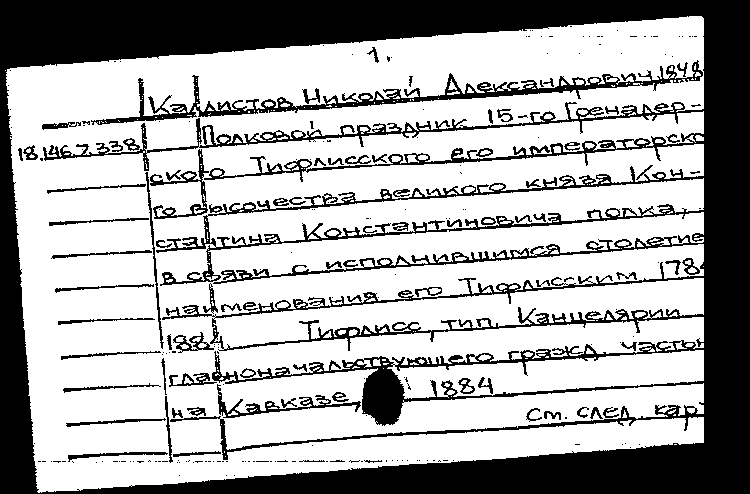 1.
Каллистов, Николай Александрович, 1848
18.146.7.338
Полковой праздник 15-го Гренадер-
ского Тифлисского его императорско
го высочества великого князя Кон-
стантина Константиновича полка,
в связи с исполнившимся столетие
наименования его Тифлисским. 178
1884. Тифлисс, тип. Канцелярии
главноначальствующего гражд. часть
на Кавказе, 1884.
См. след. кар